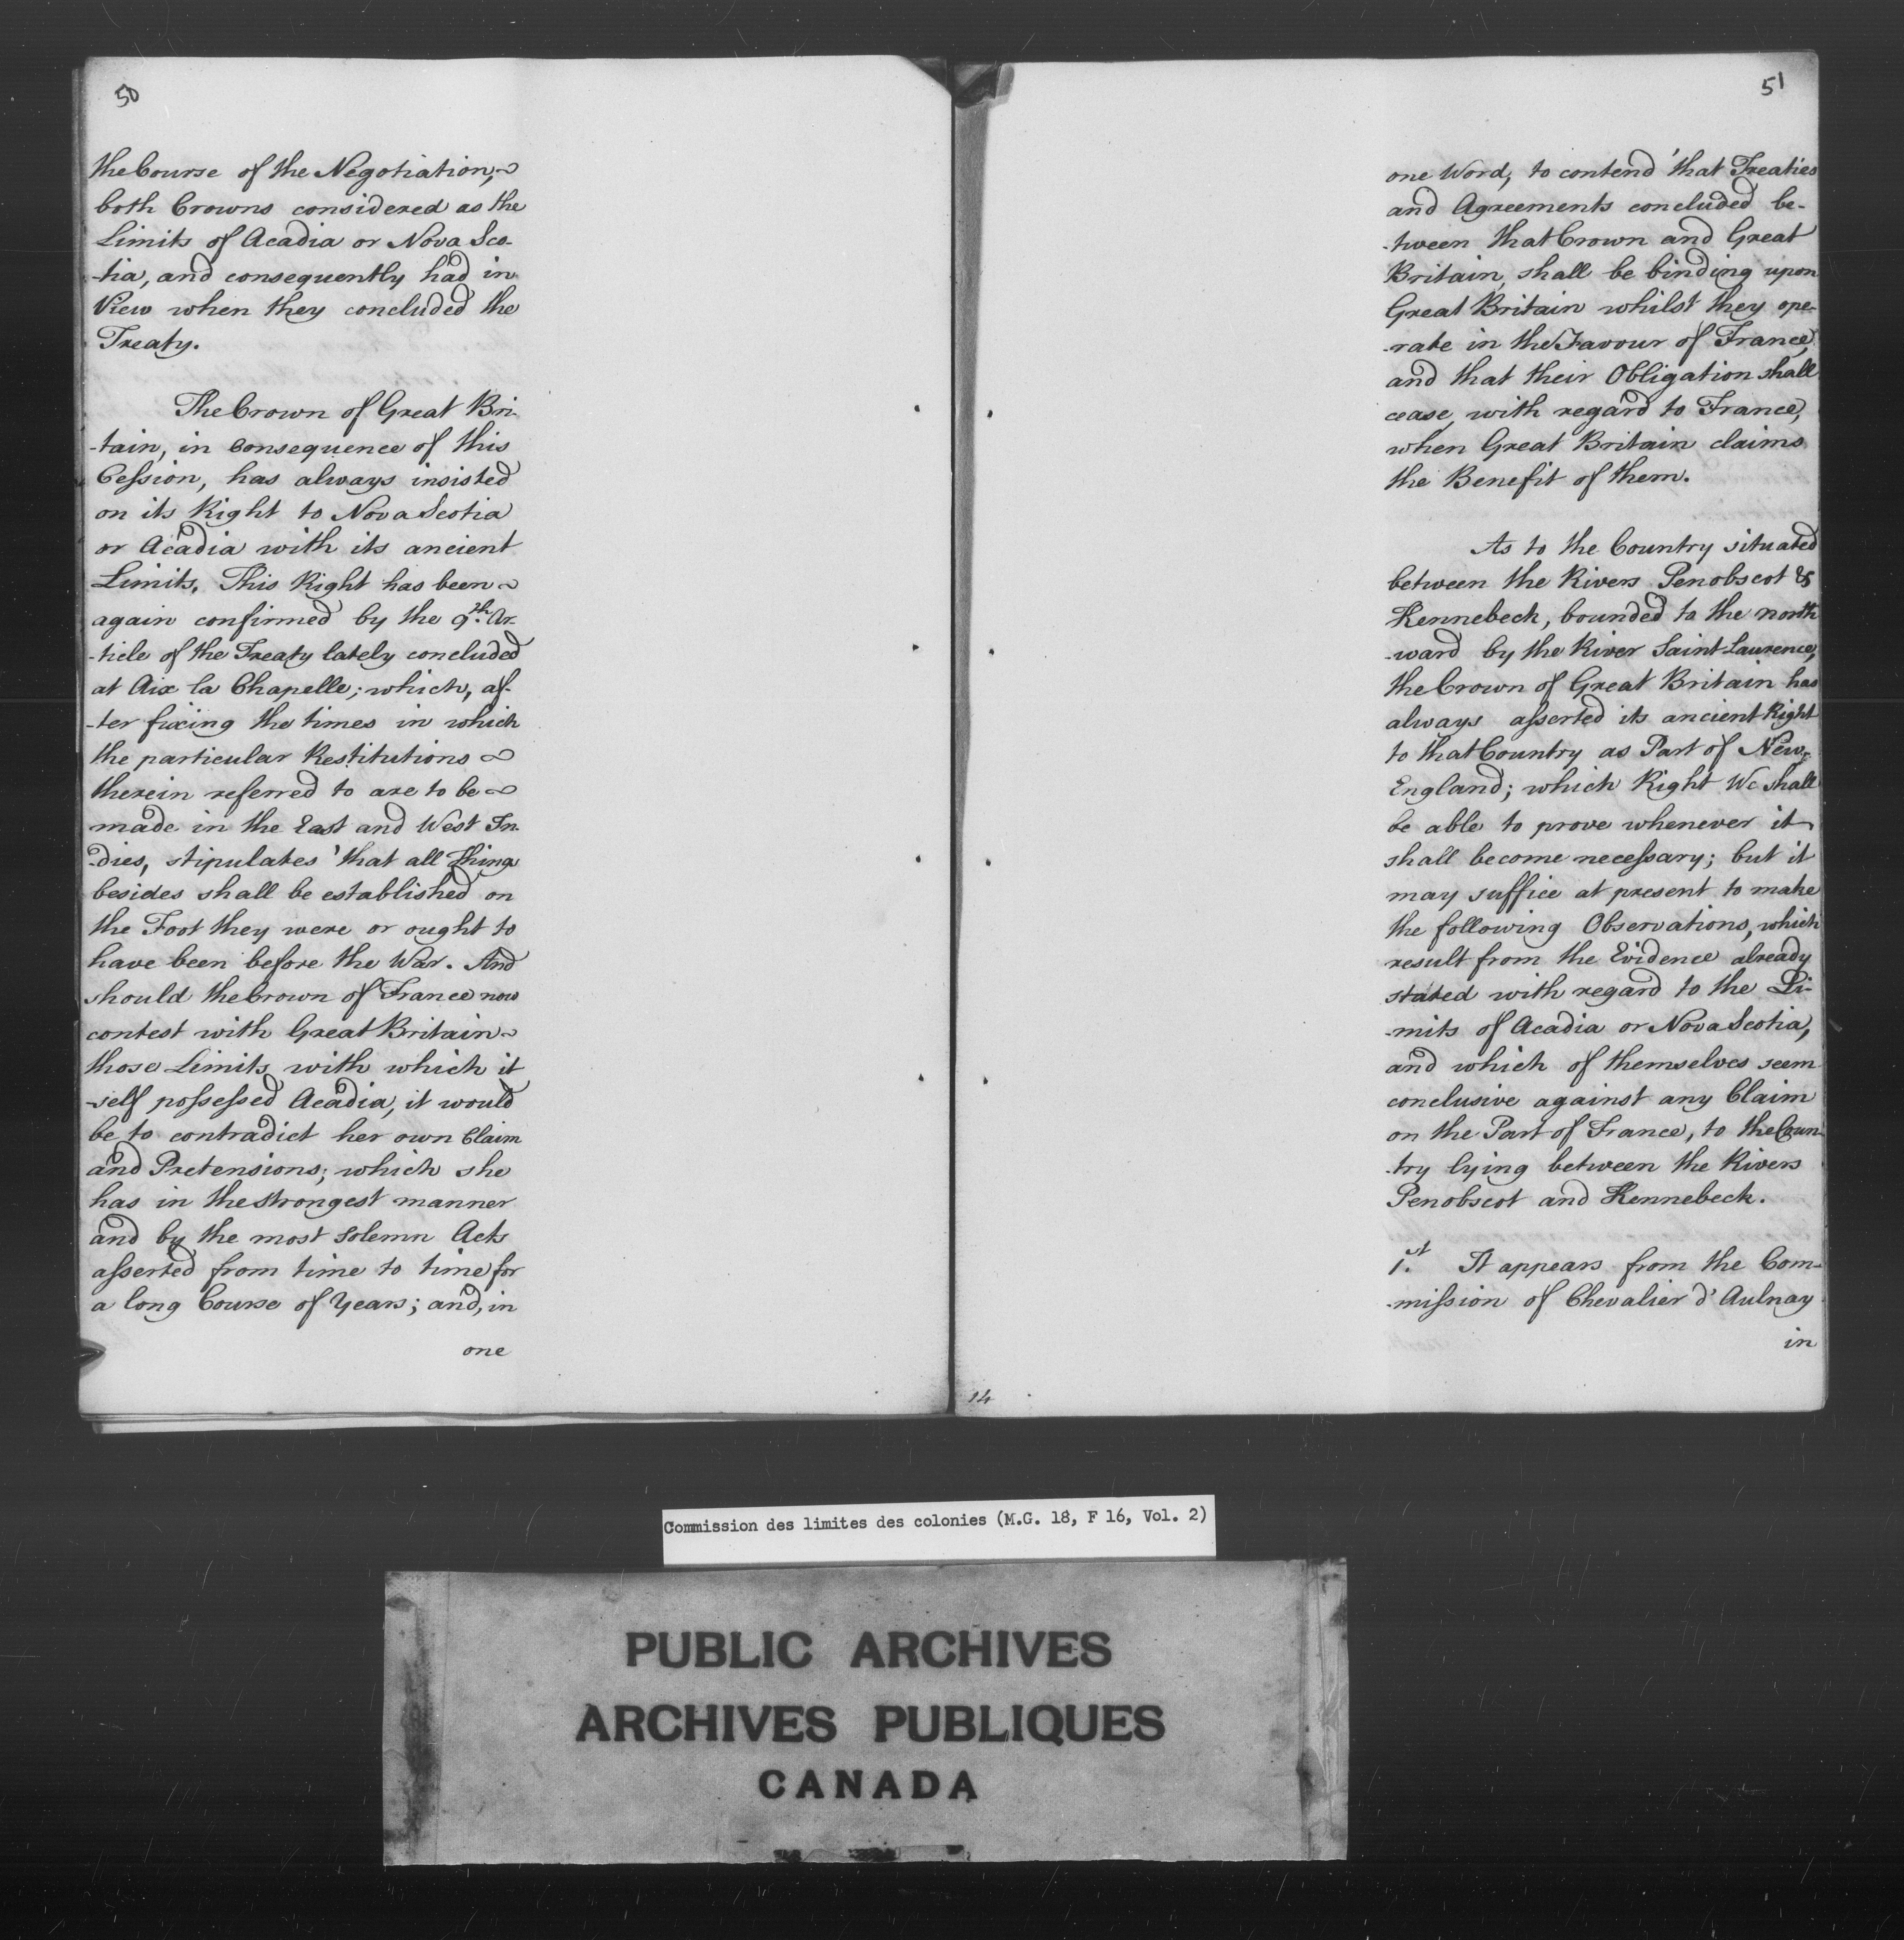 50
the Course of the Negotiation,
both Crowns considered as the
Limits of Acadia or Nova Sco-
-tia, and consequently had in
View when they concluded the
Treaty.
The Crown of Great Bri-
-tain, in Consequence of this
Cession, has always insisted
on its Right to Nova Scotia
or Acadia with its ancient
Limits. This Right has been
again confirmed by the 9th. Ar-
-ticle of the Treaty lately concluded
at Aix la Chapelle; which, af-
-ter fixing the times in which
the particular Restitutions
therein referred to are to be
made in the East and West In-
-dies, stipulates 'that all Things
besides shall be established on
the Foot they were or ought to
have been before the War. And
should the Crown of France now
contest with Great Britain
those Limits with which it
-self possessed Acadia, it would
be to contradict her own Claim
and Pretensions; which she
has in the strongest manner
and by the most solemn Acts
asserted from time to time for
a long Course of Years; and, in
one
51
one Word, to contend 'that Treaties
and Agreements concluded be-
-tween that Crown and Great
Britain, shall be binding upon
Great Britain whilst they ope-
-rate in the Favour of France,
and that their Obligation shall
cease, with regard to France,
when Great Britain claims
the Benefit of them.
As to the Country situated
between the Rivers Penobscot &
Kennebeck, bounded to the north
-ward by the River Saint Laurence,
the Crown of Great Britain has
always asserted its ancient Right
to that Country as Part of New-
England; which Right We shall
be able to prove whenever it
shall become necessary; but it
may suffice at present to make
the following Observations, which
result from the Evidence already
stated with regard to the Li-
-mits of Acadia or Nova Scotia,
and which of themselves seem
conclusive against any Claim
on the Part of France, to the Coun-
-try lying between the Rivers
Penobscot and Kennebeck.
1.st It appears from the Com-
-mission of Chevalier d'Aulnay
in
14
Commission des limites des colonies (M.G. 18, F 16, Vol. 2)
PUBLIC ARCHIVES
ARCHIVES PUBLIQUES
CANADA